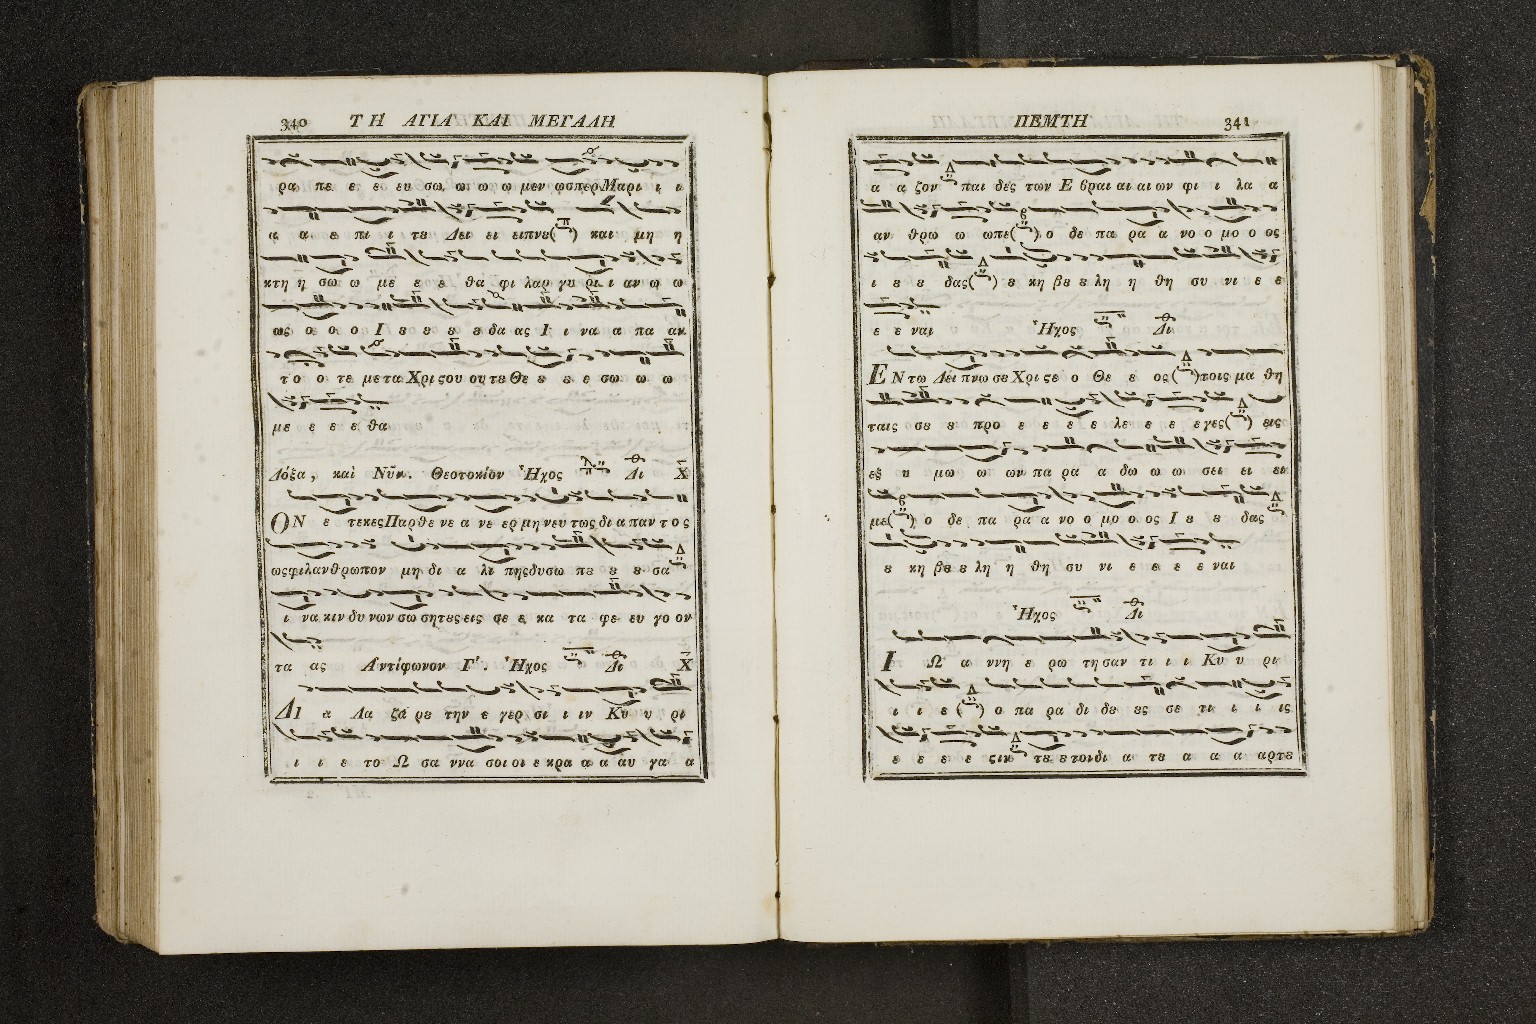 340 ΤΗ ΑΓΙΑ ΚΑΙ ΜΕΓΑΛΗ
ρα πε ε ε ευ σω ω ω ω μεν ωσπερ Μαρι ι ι
α α ε πι ι τȣ Δει ει ειπνȣ(π) και μη η
κτη η σω ω με ε ε θα φι λαρ γυ ρι ι αν ω ω
ως ο ο ο Ι ȣ ȣ ȣ ȣ δα ας Ι ι να α πα αν
το ο τε με τα Χριςου ου τȣ Θε ȣ ε ε σω ω ω
με ε ε ε θα
Δόξα, καὶ Νῦν. Θεοτοκίον Ἦχος Δι Χ
ΟΝ ε τεκες Παρθε νε α νε ερ μη νευ τως δι α παν τ ο ς
ως φιλανθρωπον μη δι α λι πῃς δυσω πȣ ȣ ȣ σα Δ
ι να κιν δυ νων σω σῃ τȣς εις σε ε κα τα φε ευ γο ον
τα ας Ἀντίφωνον Γ'. Ἦχος Δι Χ
ΔΙ α Λα ζα ρȣ την ε γερ σι ι ιν Κυ υ ρι
ι ι ε το Ω σα ννα σοι οι ε κρα α α αυ γα α
ΠΕΜΤΗ 341
α α ζον Δ παι δες των Ε βραι αι αι ων φι ι λα α
αν θρω ω ωπε(β) ο δε πα ρα α νο ο μο ο ος
ι ȣ ȣ δας(Δ) ȣ κη βȣ ȣ λη η θη συ νι ε ε
ε ε ναι Ἦχος Δι
ΕΝ τω Δει πνω σε Χρι ςε ο Θε ε ος(Δ) τοις μα θη
ταις σȣ ȣ προ ε ε ε ε λε ε ε εγες(Δ) εις
εξ υ μω ω ων πα ρα α δω ω ω σει ει ει
με(β) ο δε πα ρα α νο ο μο ο ος Ι ȣ ȣ δας Δ
ȣ κη βȣ ȣ λη η θη συ νι ε ε ε ε ναι
Ἦχος Δι
Ι Ω α ννη ε ρω τη σαν τι ι ι Κυ υ ρι
ι ι ε(Δ) ο πα ρα δι δȣ ȣς σε τι ι ι ις
ε ε ε ε ςιν Δ τȣ ȣ τον δι α τȣ α α α αρτȣ